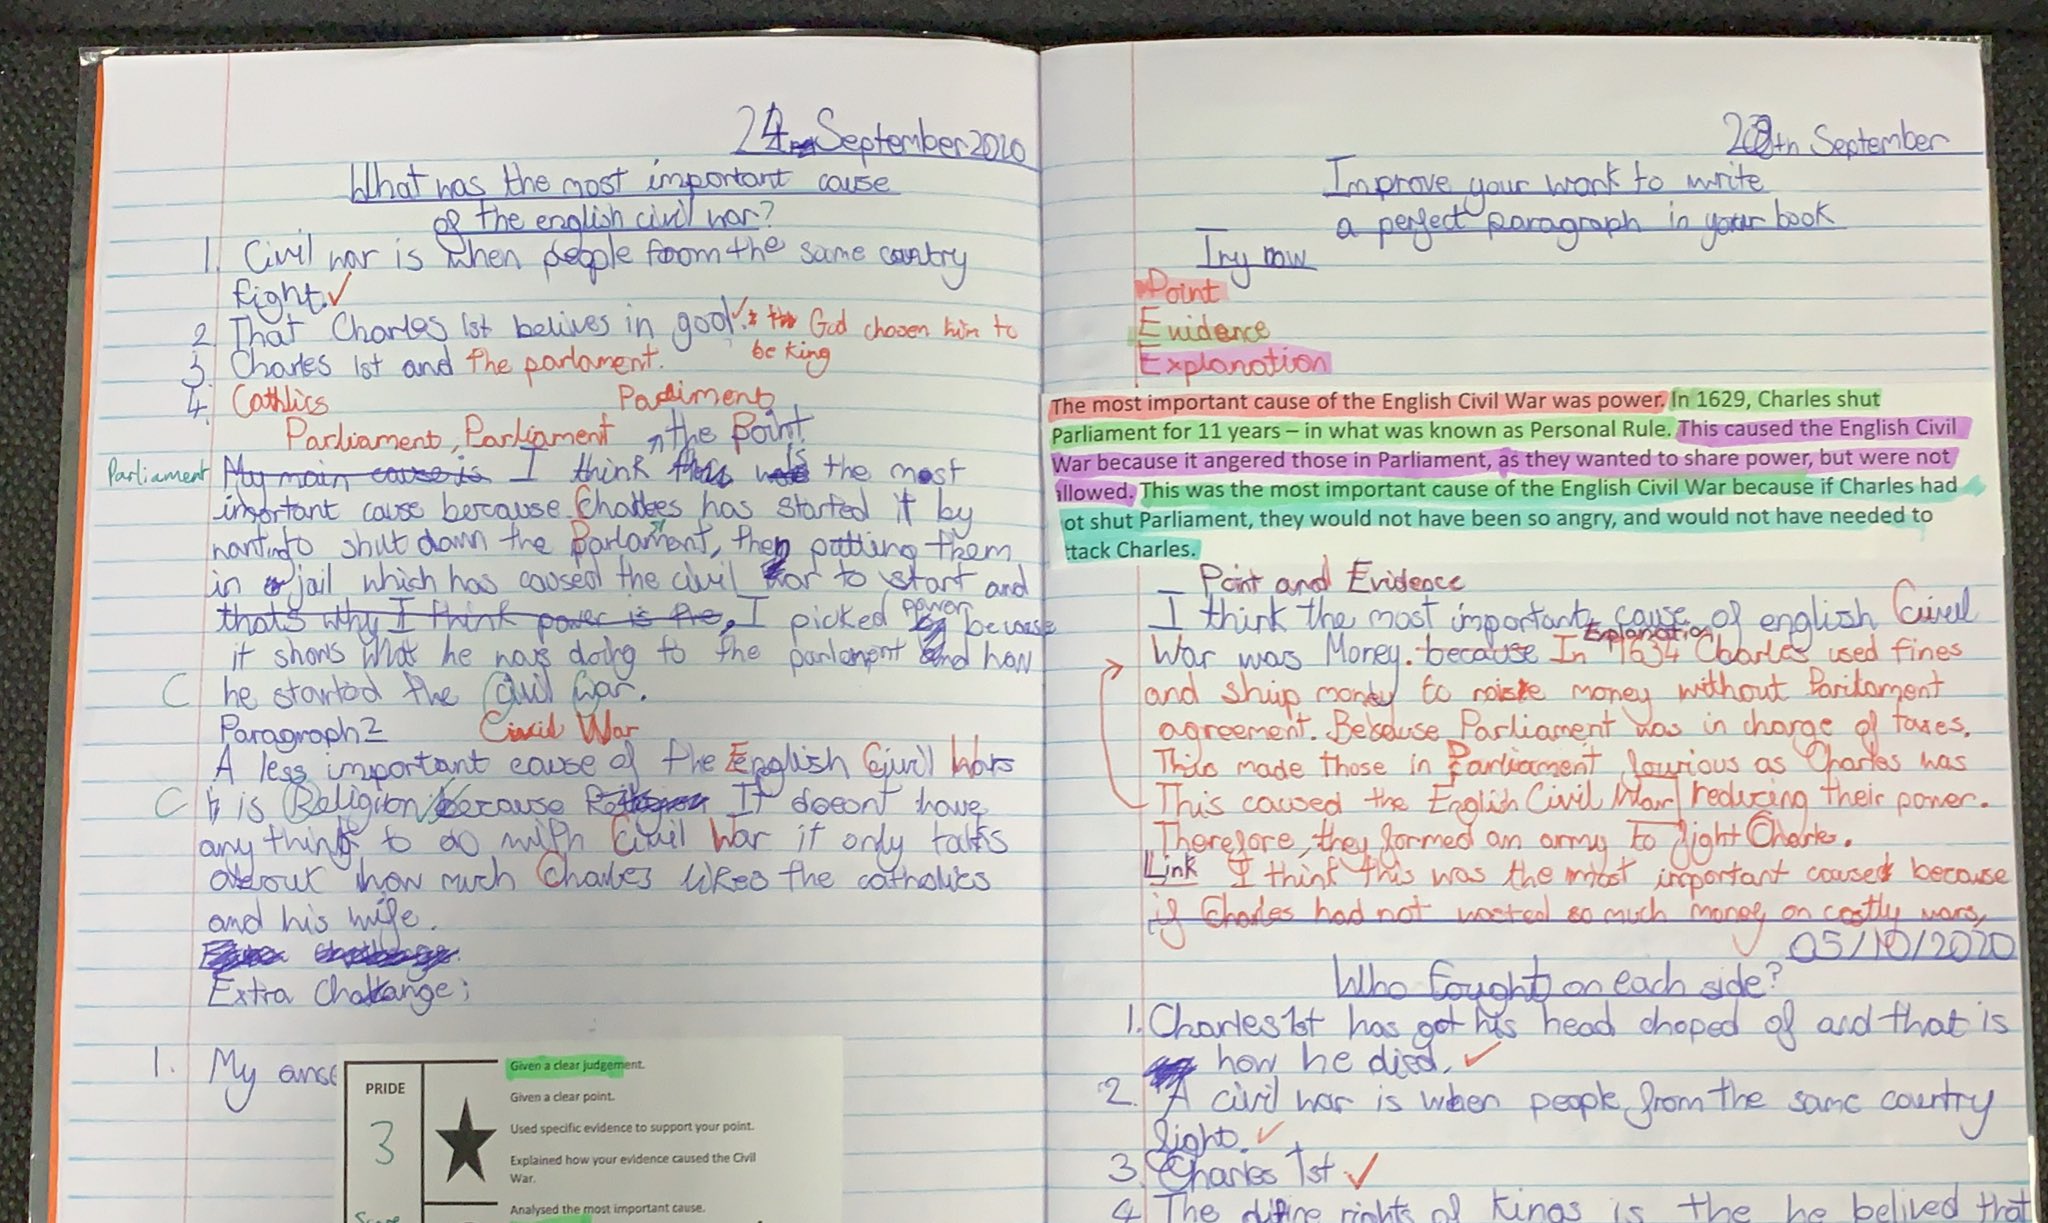 24 September 2020
What was the most important cause
of the english civil war?
1. Civil war is when people from the same country
fight. ✓
2 That Charles 1st belives in god. ✓ God chosen him to
be king
3. Charles 1st and the parlament.
4. Cathlics
Parliament, Parliament Parliment
the Point
Parliament My main cause is I think is the most
important cause because Charles has started it by
wanting to shut down the Parlament, then putting them
in jail which has caused the civil war to start and
thats why I think power is the, I picked power because
it shows what he was doing to the parlament and how
C he started the Civil War.
Paragraph 2 Civil War
A less important cause of the English Civil Wars
C is Religion because It doesnt have
any thing to do with Civil War it only talks
about how much Charles likes the catholics
and his wife.
Extra Challange:
1. My anse
PRIDE
3
Given a clear judgement.
Given a clear point.
Used specific evidence to support your point.
Explained how your evidence caused the Civil
War.
Analysed the most important cause.
28th September
Improve your work to write
a perfect paragraph in your book
Try now
Point
Evidence
Explanation
The most important cause of the English Civil War was power. In 1629, Charles shut
Parliament for 11 years – in what was known as Personal Rule. This caused the English Civil
War because it angered those in Parliament, as they wanted to share power, but were not
llowed. This was the most important cause of the English Civil War because if Charles had
ot shut Parliament, they would not have been so angry, and would not have needed to
ttack Charles.
Point and Evidence
I think the most important cause of english Civil
Explanation
War was Money. because In 1634 Charles used fines
and ship money to raise money without Parilament
agreement. Because Parliament was in charge of taxes.
This made those in Parliament fourious as Charles was
This caused the English Civil War reducing their power.
Therefore, they formed an army to fight Charles.
Link I think this was the most important cause because
if Charles had not wasted so much money on costly wars,
05/10/2020
Who fought on each side?
1. Charles 1st has got his head choped of and that is
how he died. ✓
2. A civil war is when people from the same country
fight. ✓
3. Charles 1st ✓
4 The difine rights of kings is the he belived that